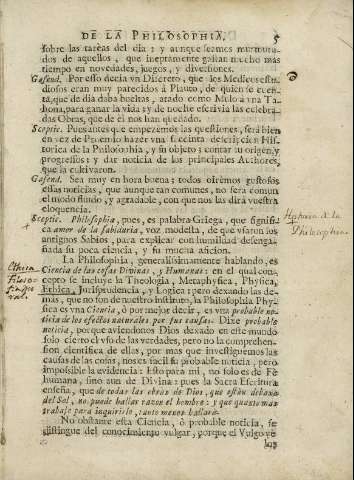 DE LA PHILOSOPHIA. 5
sobre las tareas del dia: y aunque seamos murmura-
dos de aquellos, que ineptamente gastan mucho mas
tiempo en novedades, juegos, y diversiones.
Gasend. Por esso decia vn Discreto, que los Medicos estu-
diosos eran muy parecidos à Plauto, de quien se cuen-
ta, que de dia daba bueltas, atado como Mulo à vna Ta-
hona, para ganar la vida; y de noche escrivia las celebra-
das Obras, que de èl nos han quedado.
Sceptic. Pues antes que empezèmos las questiones, serà bien
en vez de Proemio hazer vna sucinta descripcion His-
torica de la Philosophia, y su objeto; contar su origen, y
progressos; y dar noticia de los principales Authores,
que la cultivaron.
Gasend. Sea muy en hora buena; todos oirèmos gustosos
essas noticias, que aunque tan comunes, no serà comun
el modo fluido, y agradable, con que nos las dirà vuestra
eloquencia.
Sceptic. Philosophia, pues, es palabra Griega, que signifi-
ca amor de la sabiduria, voz modesta, de que vsaron los
antiguos Sabios, para explicar con humildad desenga-
ñada su poca ciencia, y su mucha aficion.
La Philosophia, generalissimamente hablando, es
Ciencia de las cosas Divinas, y Humanas: en el qual con-
cepto se incluye la Theologia, Metaphysica, Physica,
Ethica, Jurisprudencia, y Logica: pero dexando las de-
mas, que no son de nuestro instituto, la Philosophia Phy-
sica es vna Ciencia, ò por mejor decir, es vna probable no-
ticia de los efectos naturales por sus causas. Dixe probable
noticia, por que aviendonos Dios dexado en este mundo
solo cierto el vso de las verdades, pero no la comprehen-
sion cientifica de ellas, por mas que investiguemos las
causas de las cosas, nos es facil su probable noticia, pero
impossible la evidencia: Esto para mi, no solo es de Fè
humana, sino aun de Divina: pues la Sacra Escritura
enseña, que de todas las obras de Dios, que estàn debaxo
del Sol, no puede hallar razon el hombre: y que quanto mas
trabaje para inquirirlo, tanto menos hallarà.
No obstante esta Ciencia, ò probable noticia, se
distingue del conocimiento vulgar, porque el Vulgo ve
los
Historia de la
Philosophia